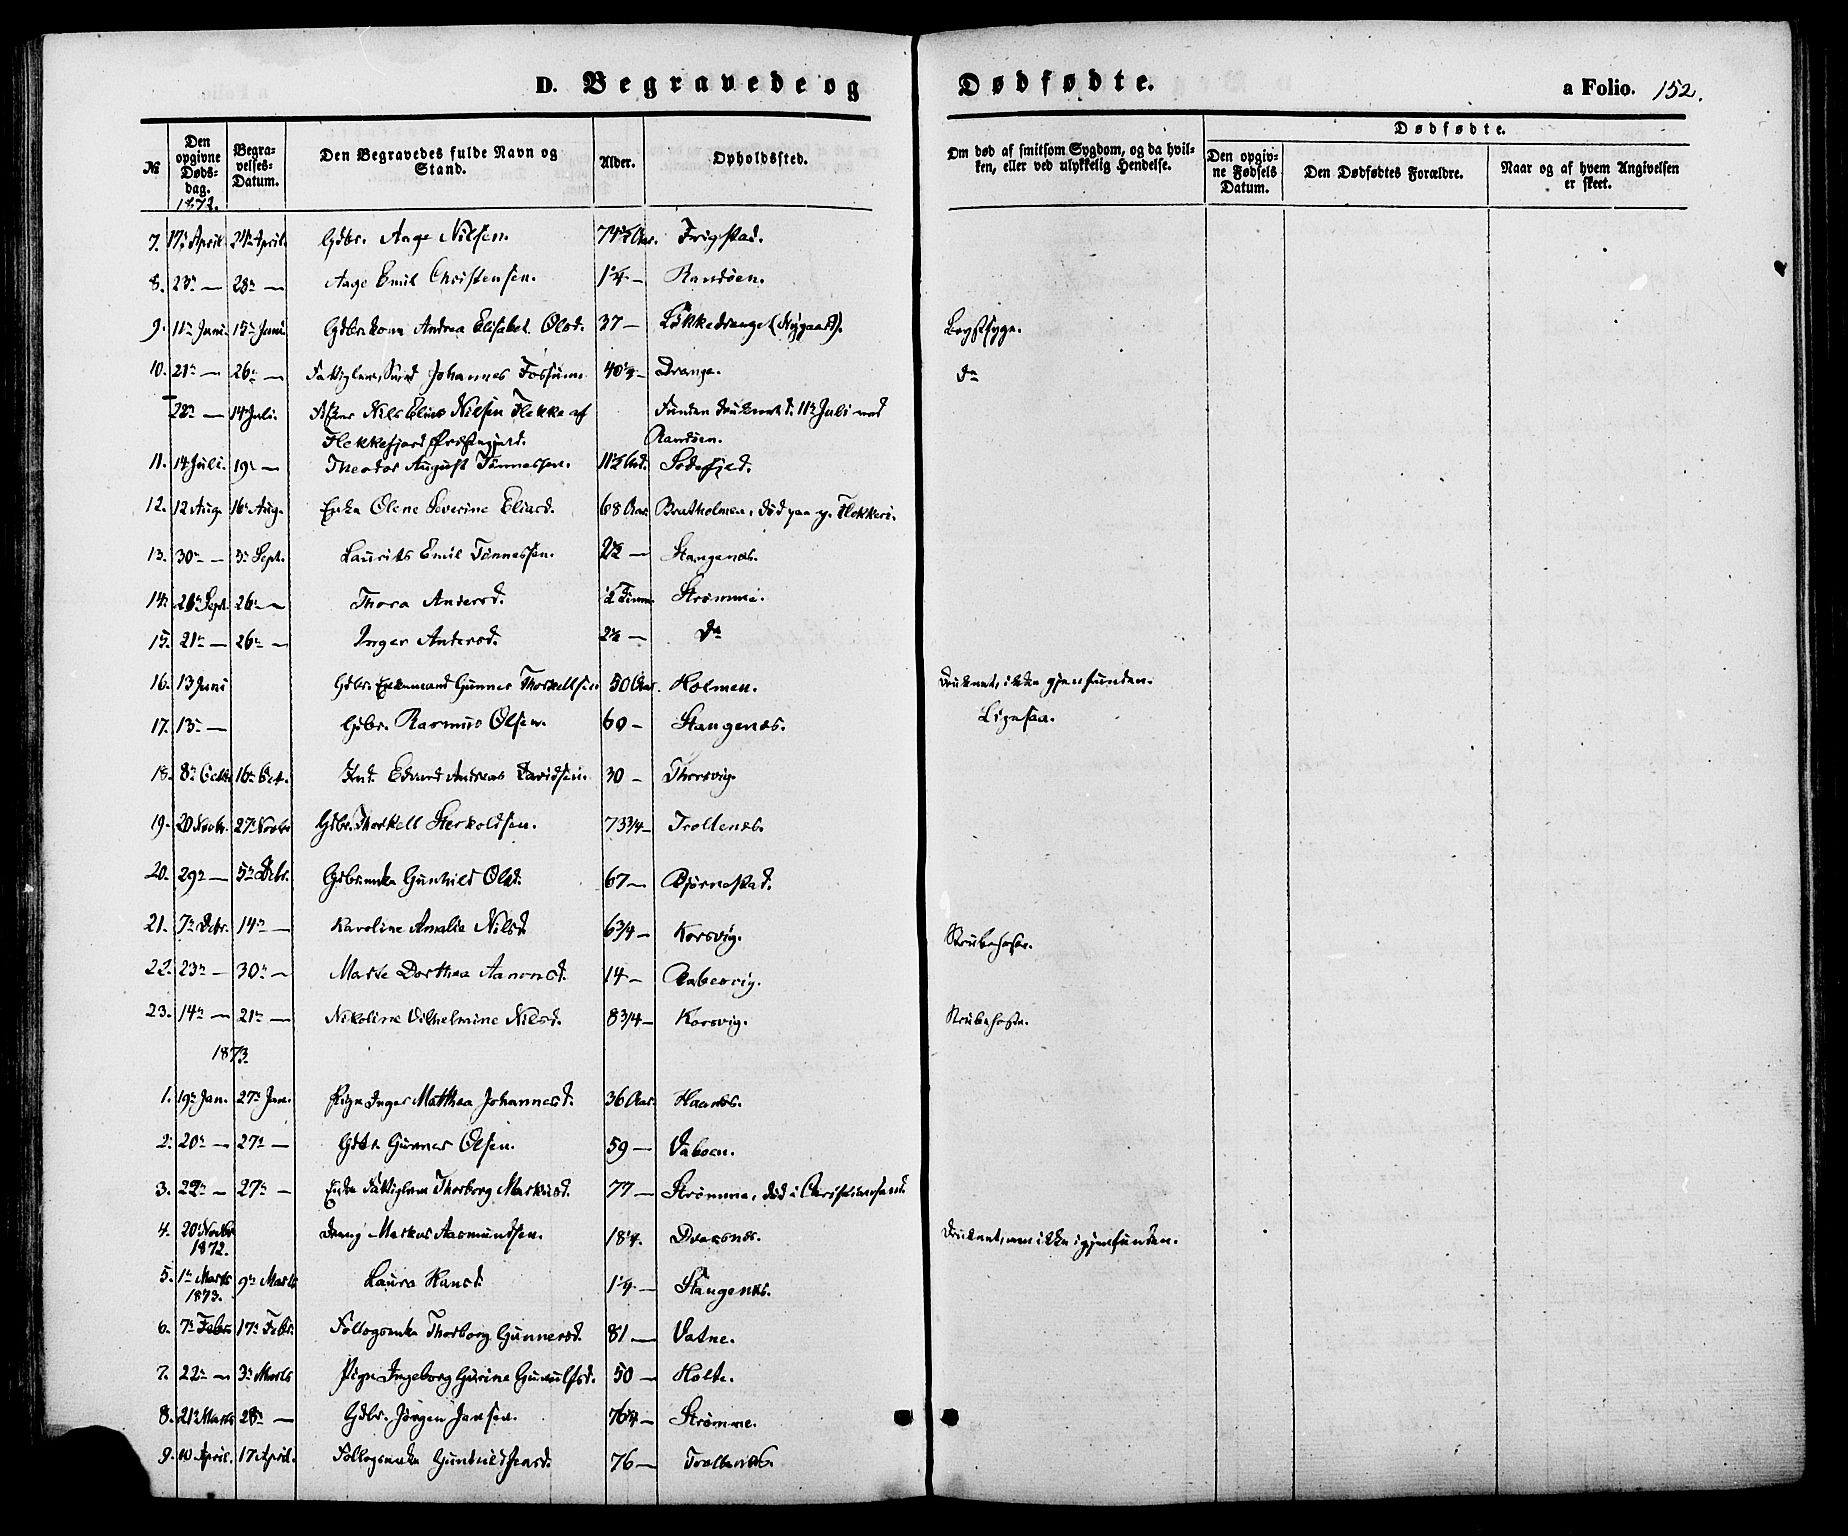 D. Begravede og Dødfødte. a Folio. 152.
№ Den opgivne Dødsdag. 1872. Begravelses-Datum. Den Begravedes fulde Navn og Stand. Alder. Opholdssted. Om død af smitsom Sygdom, og da hvilken, eller ved ulykkelig Hendelse. Dødfødte. Den opgivne Fødsels Datum. Den Dødfødtes Forældre. Naar og af hvem Angivelsen er skeet.
7. 17de April 24de April Gdbr. Aage Nilsen. 74½ Aar. Frigstad.
8. 23de — 28de — Aage Emil Christensen. 1¼ — Randøen.
9. 11te Juni. 15de Juni. Gdbr.kone Andrea Elisabet Olsd. 37 — Løkkedrange (Nygaard). Brystsyge.
10. 21de — 26de — Fattiglem, Johannes Fossum 40¼ — Drange. do
28de — 14 Juli. Nils Elias Nilsen Flekke af Flekkefjord Præstegjeld. Funden druknet d. 11te Juli ved Randøen.
11. 14 Juli. 19de — Theodor August Tønnessen. 11½ Sodefjed.
12. 12 Aug. 16de Aug. Enke Olene Severine Eliasd. 68 Aar. Bratholmen, død paa Flekkerø.
13. 30te — 3de Sept. Laurits Emil Tønnessen. 2½ — Stangenes.
14. 21de Sept. 26de — Thora Andersd. ½ Time Strømme.
15. 21de — 26de — Inger Andersd. 2½ — do
16. 13 Juni Gdbr. Enkemand Gunner Thorkellsen 50 Aar. Holmen. Druknet, ikke gjenfunden.
17. 15de — Gdbr. Rasmus Olsen. 60 — Stangenes. Ligesaa.
18. 8de Octbr. 16de Oct. Ind. Edvard Andreas Davidsen. 30 — Thorsvig.
19. 20 Novbr. 27de Novbr Gdbr. Thorkell Sterkoldsen. 73¾ — Troltenes.
20. 29de — 5te Debr. Gdbr.enke Gunhild Olsd. 67 — Bjørnestad.
21. 7de Dcbr. 14de — Karoline Amalie Nilsd. 6¾ — Korsvig. Strubehoste.
22. 23de — 30te — Marie Dorthea Aanonsd. 14 — Rabesvig.
23. 14de — 21de — Nikoline Vilhelmine Nilsd. 8¾ — Korsvig. Strubehoste.
1873
1. 19de Jan. 27de Jan. Pige Inger Matthea Johannesd. 36 Aar. Haanes.
2. 20de — 27de — Gunner Olsen. 59 — Vaboen.
3. 22de — 27de — Enke Fattiglem Thorborg Markusd. 77 — Strømme, død i Christianssand.
4. 20 Novbr 1872. Dreng Markus Aasmundsen. 18¼. Dvasnes. Druknet, men ikke igjenfunden.
5. 1ste Marts 1873. 9de Marts Laura Hansd. 1¼ — Stangenes.
6. 7de Febr. 17de Febr. Føllogsenke Thorborg Gunnersd. 81 — Vatne.
7. 22de — 3de Marts Pige Ingeborg Gurine Gunulfsd. 50 — Holte.
8. 21de Marts 28de — Gdbr. Jørgen Jensen. 76¼ — Strømme.
9. 10 April. 17 April. Føllogsenke Gunhild Jensd. 76 — Troltenes.